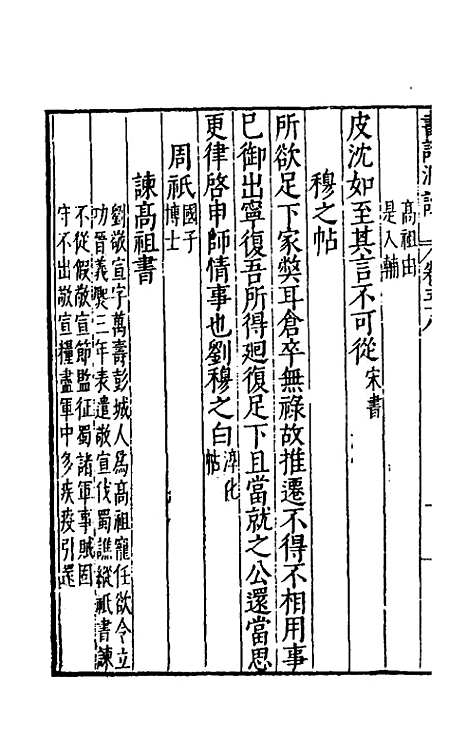 書記洞詮 卷五十八
高祖由
是入輔
皮沈如至其言不可從 宋書
穆之帖
所欲足下家弊耳倉卒無祿故推遷不得不相用事
已御出寧復吾所得廻復足下且當就之公還當思
更律啓申師情事也劉穆之白 淳化帖
周祇 國子博士
諫髙祖書
劉敬宣字萬壽彭城人爲高祖寵任欲令立
功晉義熙三年表遣敬宣伐蜀譙縱祇書諫
不從假敬宣節監征蜀諸軍事賊固
守不出敬宣糧盡軍中多疾疫引還